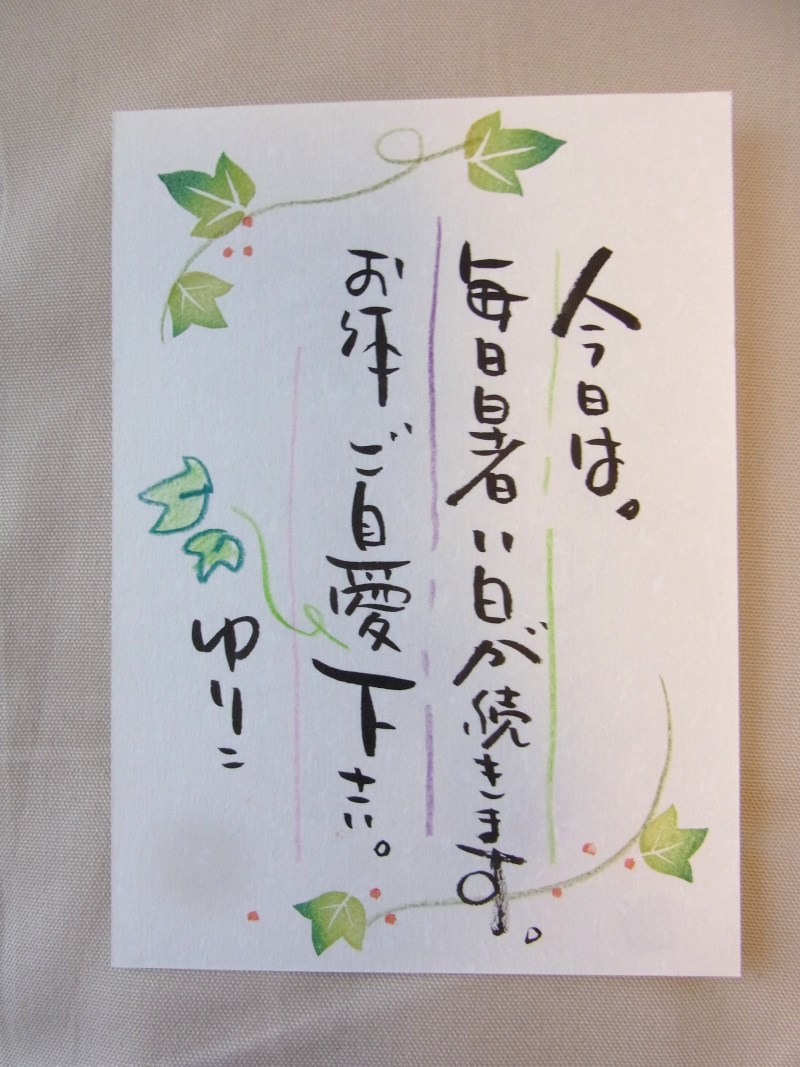 今日は。
毎日暑い日が続きます。
お体ご自愛下さい。
ゆりこ